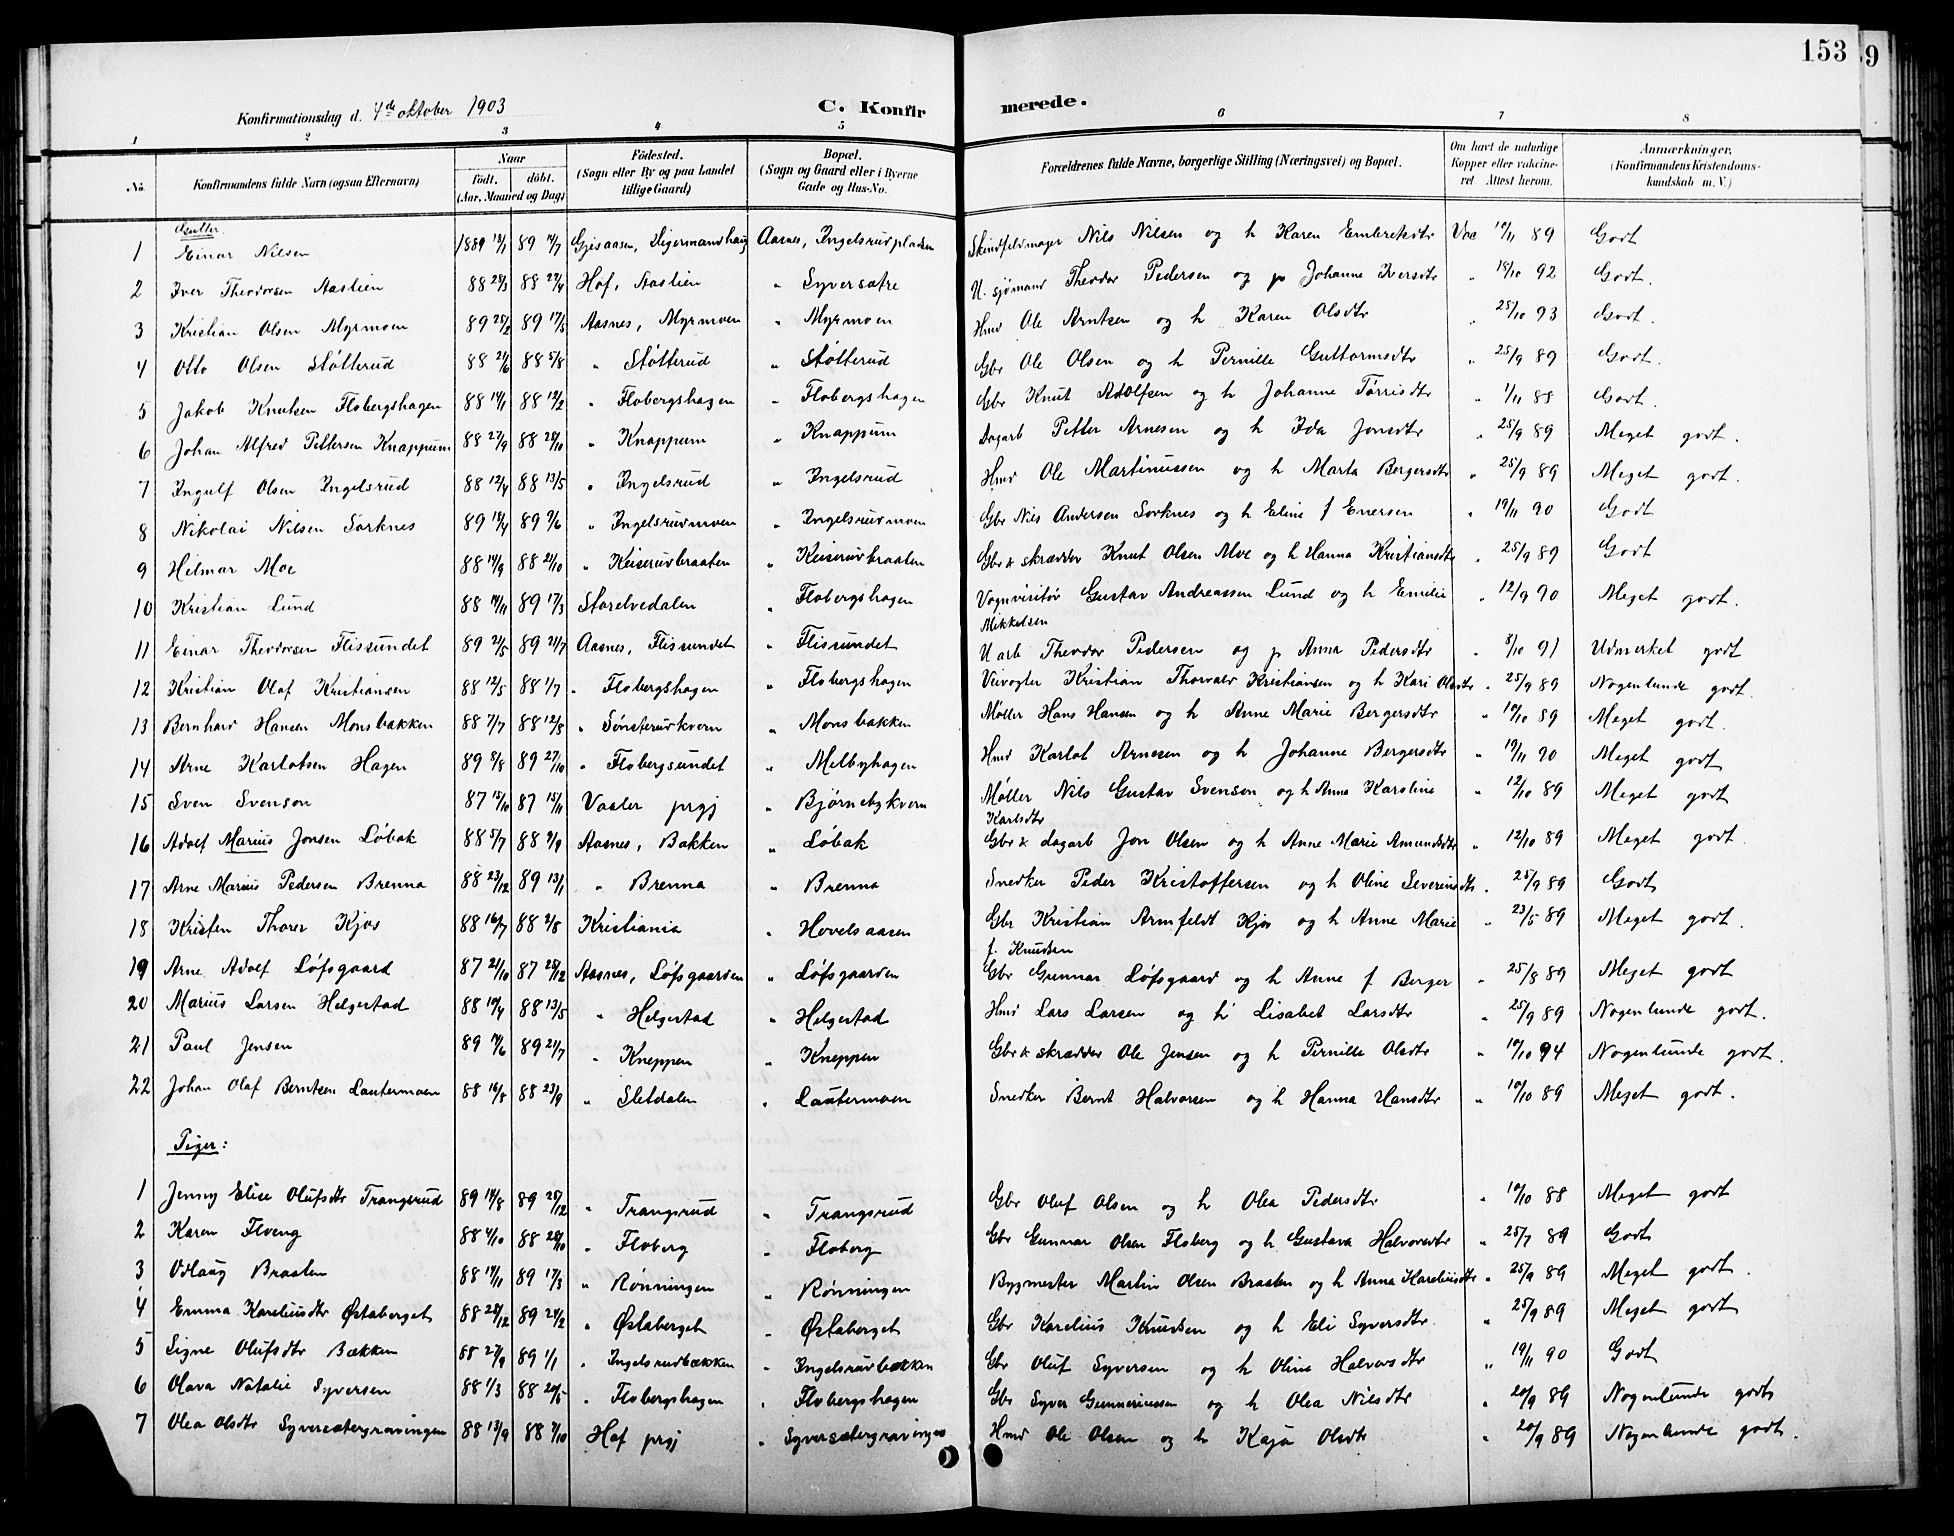 153
9
Konfirmationsdag d. 4de oktober 1903
C. Konfirmerede.
1 2 3 4 5 6 7 8
No. Konfirmandens fulde Navn (ogsaa Efternavn) Naar født. døbt. (Aar, Maaned og Dag) Fødested. (Sogn eller By og paa Landet tillige Gaard) Bopæl. (Sogn og Gaard eller i Byerne Gade og Hus-No. Forældrenes fulde Navne, borgerlige Stilling (Næringsvei) og Bopæl. Om havt de naturlige Kopper eller vaccineret Attest herom. Anmærkninger. (Konfirmandens Kristendomskundskab m. V.)
Gutter.
1 Einar Nilsen 1889 89 14/7 Gjesaasen, Aasnes, Ingelsrudpladsen Skindfeldmager Nils Nilsen og h Karen Embretsdtr Vac 10/11 89 Godt
2 Iver Theodorsen Aastien 88 28/3 88 22/4 Hof, Aastien " Syversætre U. sjømand Theodor Pedersen og p Johanne Iversdtr " 18/10 92 Godt.
3 Kristian Olsen Myrmoen 89 25/2 89 17/3 Aasnes, Myrmoen " Myrmoen Hmd Ole Arntsen og h Karen Olsdtr " 25/10 93 Godt.
4 Otto Olsen Støtterud 88 21/6 88 5/8 " Støtterud " Støtterud Gbr Ole Olsen og h Pernille Guttormsdtr " 25/9 89 Godt.
5 Jakob Knutsen Flobergshagen 88 14/1 88 12/2 " Flobergshagen " Flobergshagen Gbr Knut Adolfsen og h Johanne Tørrisdtr " 1/11 88 Godt.
6 Johan Alfred Pettersen Knappum 88 27/9 88 28/10 " Knappum " Knappum Dagarb Petter Arnesen og h Ida Jonsdtr " 25/9 89 Meget godt.
7 Ingulf Olsen Ingelsrud 88 12/4 88 13/5 " Ingelsrud " Ingelsrud Hmd Ole Martinussen og h Marta Bergersdtr " 25/9 89 Meget godt.
8 Nikolai Nilsen Sorknes 89 18/4 89 9/6 " Ingelsrudmoen " Ingelsrudmoen Gbr Nils Andersen Sorknes og h Eline f Enersen " 19/11 90 Godt
9 Hilmar Moe 88 14/9 88 21/10 " Keiserudbraaten " Keiserudbraaten Gbr & skrædder Knut Olsen Moe og h Hanna Kristiansdtr " 25/9 89 Godt
10 Kristian Lund 88 14/11 89 17/3 Storelvedalen " Flobergshagen Vognvisitør Gustav Andreassen Lund og h Emelie Mikkelsen " 12/9 90 Meget godt.
11 Einar Theodorsen Flissundet 89 21/5 89 21/7 Aasnes, Flissundet " Flissundet U arb Theodor Pedersen og p Anna Pedersdtr " 8/10 91 Udmerket godt
12 Kristian Olaf Kristiansen 88 12/5 88 1/7 " Flobergshagen " Flobergshagen Veivogter Kristian Thorvald Kristiansen og h Kari Olsdtr " 25/9 89 Nogenlunde godt.
13 Bernhard Hansen Monsbakken 88 7/7 88 12/8 " Sønsterudkvern " Monsbakken Møller Hans Hansen og h Anne Marie Bergersdtr " 10/10 89 Meget godt.
14 Arne Karlotsen Hagen 89 8/8 89 27/10 " Flobergsundet " Melbyhagen Hmd Karlot Arnesen og h Johanne Bergersdtr " 19/11 90 Meget godt
15 Sven Svenson 87 15/10 87 15/11 Vaaler prgj " Bjørnebykvern Møller Nils Gustav Svenson og h Anna Karoline Karlsdtr " 12/10 89 Meget godt
16 Adolf Marius Jonsen Løbak 88 5/7 88 2/9 Aasnes, Bakken " Løbak Gbr & dagarb Jon Olsen og h Anne Marie Amundsdtr " 12/10 89 Meget godt.
17 Arne Marius Pedersen Brenna 88 23/12 89 13/1 " Brenna " Brenna Snedker Peder Kristoffersen og h Oline Severinsdtr " 25/9 89 Godt
18 Kristen Thorer Kjos 88 16/7 88 2/8 Kristiania " Hovelsaasen Gbr Kristian Armfeldt Kjos og h Anne Marie f. Knudsen " 23/5 89 Meget godt.
19 Arne Adolf Løfsgaard 87 21/10 87 28/12 Aasnes, Løfsgaarden " Løfsgaarden Gbr Gunnar Løfsgaard og h Anne f Berger " 25/8 89 Meget godt
20 Marius Larsen Helgestad 88 19/4 88 13/5 " Helgestad " Helgestad Hmd Lars Larsen og h Lisabet Larsdtr " 25/9 89 Nogenlunde godt.
21 Paul Jensen 89 89 21/7 " Kneppen " Kneppen Gbr & skrædder Ole Jensen og h Pernille Olsdtr " 10/10 94 Nogenlunde godt.
22 Johan Olaf Berntsen Lautermoen 88 16/8 88 23/9 " Sletdalen " Lautermoen Snedker Bernt Halvorsen og h Hanna Hansdtr " 10/10 89 Meget godt.
Piger:
1 Jenny Elise Olufsdtr Trangsrud 89 14/8 89 25/12 " Trangsrud " Trangsrud Gbr Oluf Olsen og h Olea Pedersdtr " 10/10 88 Meget godt
2 Karen Floeng 88 4/10 88 28/10 " Floberg " Floberg Gbr Gunnar Olsen Floberg og h Gustava Halvorsdtr " 25/7 89 Godt
3 Odlaug Braaten 88 14/11 89 17/3 " Rønningen " Rønningen Bygmester Martin Olsen Braaten og h Anna Hareliusdtr " 25/9 89 Meget godt.
4 Emma Kareliusdtr Østaberget 88 28/12 89 24/2 " Østaberget " Østaberget Gbr Karelius Knudsen og h Eli Syversdtr " 25/9 89 Meget godt
5 Signe Olufsdtr Bækken 88 27/9 89 1/1 " Ingelsrudbækken " Ingelsrudbækken Gbr Oluf Syversen og h Oline Halvorsdtr " 19/11 90 Godt
6 Olava Natalie Syversen 88 1/3 88 20/5 " Flobergshagen " Flobergshagen Gbr Syver Gunneriussen og h Olea Nilsdtr " 20/9 89 Nogenlunde godt
7 Olea Olsdtr Syversætergravingen 88 13/9 88 7/10 Hof prgj " Syversætergravingen Hmd Ole Olsen og h Kaja Olsdtr " 20/9 89 Nogenlunde godt.